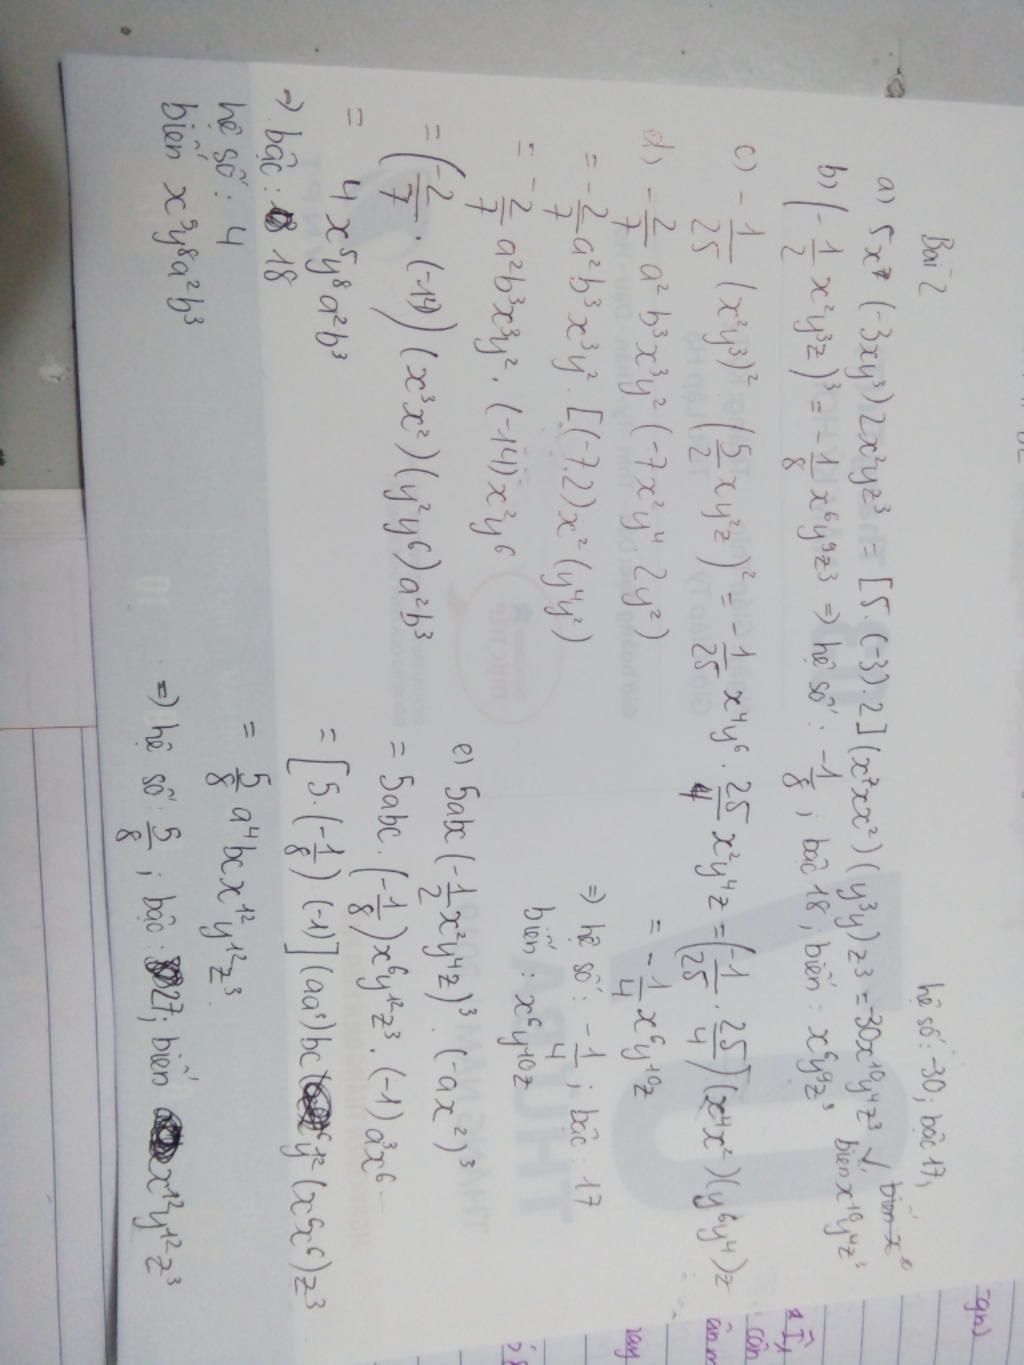 Bài 2
hệ số: -30; bậc 17;
a) 5x⁷ (-3xy³) 2x²yz³ = [5.(-3).2] (x⁷xx²) (y³y) z³ = -30x¹⁰y⁴z³
biến x¹⁰y⁴z³
b) (-1/2 x²y³z)³ = -1/8 x⁶y⁹z³ => hệ số: -1/8; bậc 18; biến: x⁶y⁹z³
c) -1/25 (x²y³)² (5/2 xy²z)² = -1/25 x⁴y⁶ . 25/4 x²y⁴z = (-1/25 . 25/4) (x⁴x²) (y⁶y⁴) z
= -1/4 x⁶y¹⁰z
=> hệ số: -1/4; bậc: 17
biến: x⁶y¹⁰z
d) -2/7 a²b³x³y² (-7x²y⁴ . 2y²)
= -2/7 a²b³x³y² . [(-7.2) x² (y⁴y²)
= -2/7 a²b³x³y² . (-14) x²y⁶
= (-2/7 . (-14)) (x³x²) (y²y⁶) a²b³
= 4x⁵y⁸a²b³
=> bậc: 18
hệ số: 4
biến x⁵y⁸a²b³
e) 5abc (-1/2 x²y⁴z)³ . (-ax²)³
= 5abc . (-1/8) x⁶y¹²z³ . (-1) a³x⁶
= [5.(-1/8).(-1)] (aa³) bc y¹² (x⁶x⁶) z³
= 5/8 a⁴bcx¹²y¹²z³.
=> hệ số: 5/8; bậc: 27; biến x¹²y¹²z³